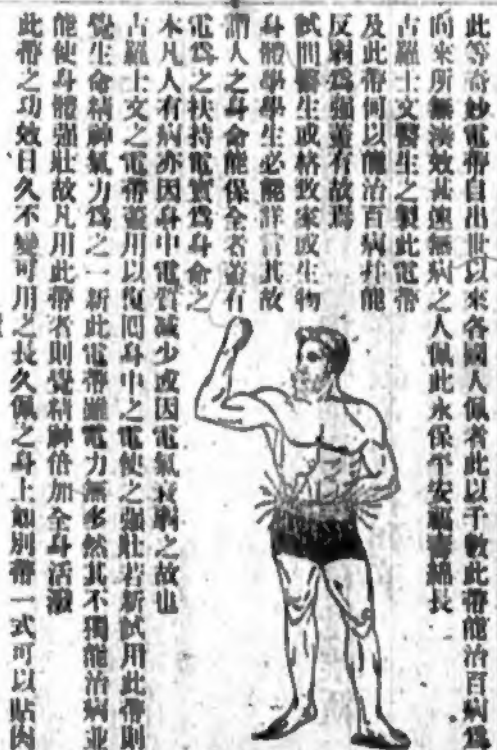 此等奇妙電帶自出世以來各國人佩者此以千數此帶能治百病為
向來所無速效甚速無病之人佩此永保平安福壽綿長
古羅士文醫生之製此電帶
及此帶何以能治百病并能
反弱為強蓋有故焉
試問醫生或格致家或生物
身體學學生必能詳言其故
謂人之身命能保全者蓋有
電為之扶持電實為身命之
本凡人有病亦因身中電質減少或因電氣衰弱之故也
古羅士文之電帶蓋用以復回身中之電使之強壯若新試用此帶則
覺生命精神氣力為之一新此電帶雖電力無多然其不獨能治病並
能使身體強壯故凡用此帶者則覺精神倍加全身活潑
此帶之功效日久不變可用之長久佩之身上如別帶一式可以貼肉